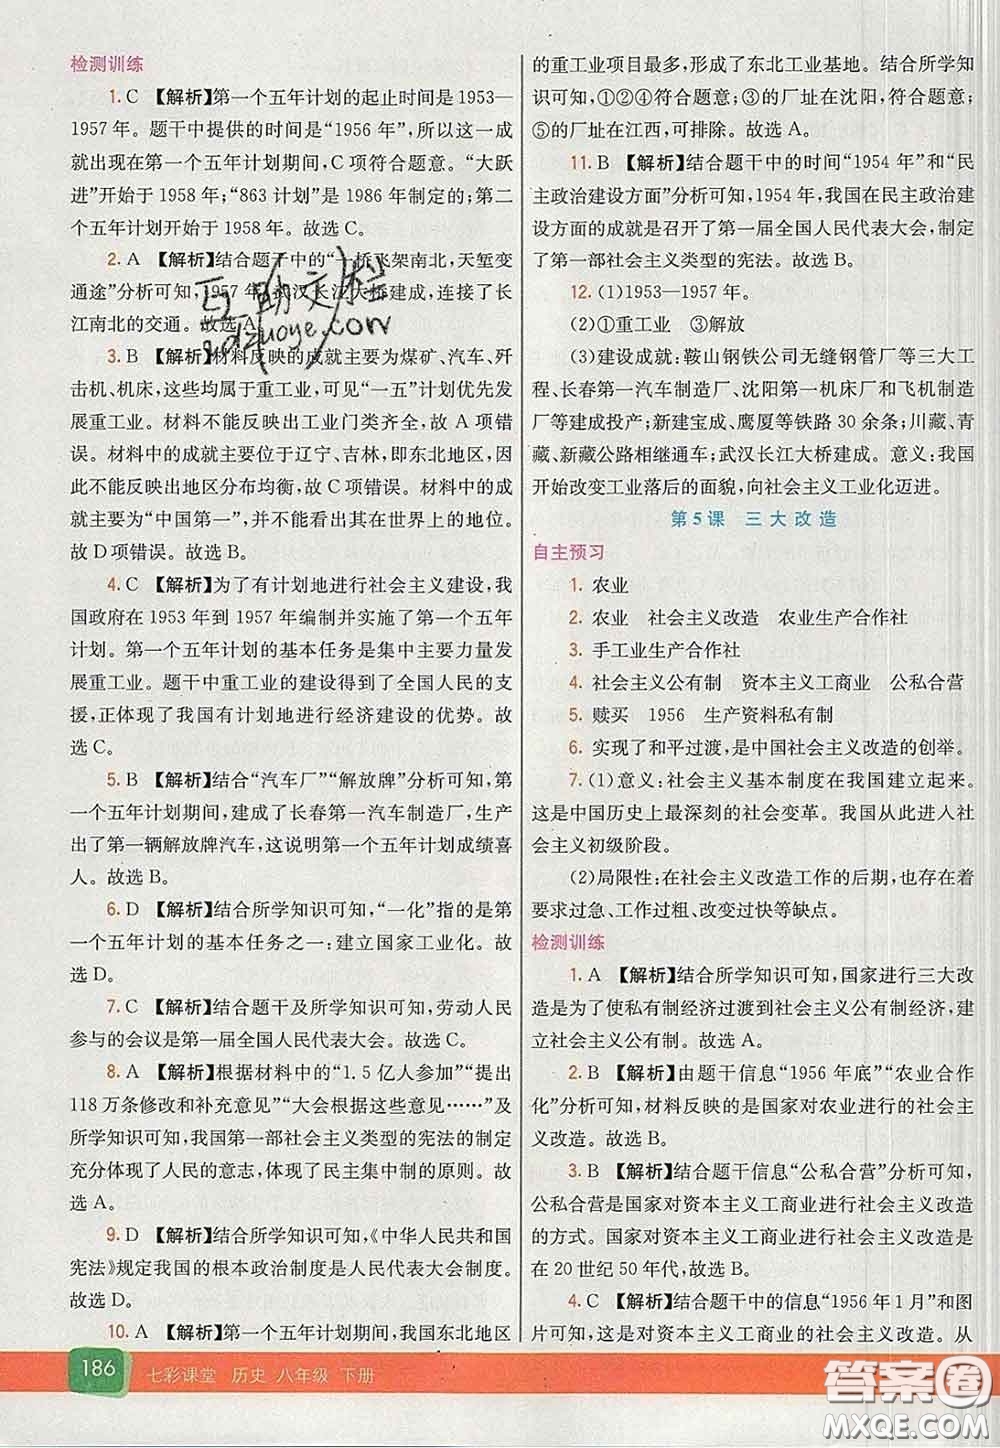 检测训练
1. C 【解析】第一个五年计划的起止时间是1953—
1957 年。题干中提供的时间是“1956 年”，所以这一成
就出现在第一个五年计划期间，C 项符合题意。“大跃
进”开始于 1958 年；“863 计划”是 1986 年制定的；第二
个五年计划开始于 1958 年。故选 C。
2. A 【解析】结合题干中的“一桥飞架南北，天堑变
通途”分析可知，1957 年，武汉长江大桥建成，连接了长
江南北的交通。故选 A。
3. B 【解析】材料反映的成就主要为煤矿、汽车、歼
击机、机床，这些均属于重工业，可见“一五”计划优先发
展重工业。材料不能反映出工业门类齐全，故 A 项错
误。材料中的成就主要位于辽宁、吉林，即东北地区，因
此不能反映出地区分布均衡，故 C 项错误。材料中的成
就主要为“中国第一”，并不能看出其在世界上的地位。
故 D 项错误。故选 B。
4. C 【解析】为了有计划地进行社会主义建设，我
国政府在 1953 年到 1957 年编制并实施了第一个五年
计划。第一个五年计划的基本任务是集中主要力量发
展重工业。题干中重工业的建设得到了全国人民的支
援，正体现了我国有计划地进行经济建设的优势。故
选 C。
5. B 【解析】结合“汽车厂”“解放牌”分析可知，第
一个五年计划期间，建成了长春第一汽车制造厂，生产
出了第一辆解放牌汽车，这说明第一个五年计划成绩喜
人。故选 B。
6. D 【解析】结合所学知识可知，“一化”指的是第
一个五年计划的基本任务之一：建立国家工业化。故
选 D。
7. C 【解析】结合题干及所学知识可知，劳动人民
参与的会议是第一届全国人民代表大会。故选 C。
8. A 【解析】根据材料中的“1.5 亿人参加”“提出
118 万条修改和补充意见”“大会根据这些意见……”及
所学知识可知，我国第一部社会主义类型的宪法的制定
充分体现了人民的意志，体现了民主集中制的原则。故
选 A。
9. D 【解析】结合所学知识可知，《中华人民共和国
宪法》规定我国的根本政治制度是人民代表大会制度。
故选 D。
10. A 【解析】第一个五年计划期间，我国东北地区
的重工业项目最多，形成了东北工业基地。结合所学知
识可知，①②④符合题意；③的厂址在沈阳，符合题意；
⑤的厂址在江西，可排除。故选 A。
11. B 【解析】结合题干中的时间“1954 年”和“民
主政治建设方面”分析可知，1954 年，我国在民主政治建
设方面的成就是召开了第一届全国人民代表大会，制定
了第一部社会主义类型的宪法。故选 B。
12. (1)1953—1957 年。
(2)①重工业 ③解放
(3)建设成就：鞍山钢铁公司无缝钢管厂等三大工
程、长春第一汽车制造厂、沈阳第一机床厂和飞机制造
厂等建成投产；新建宝成、鹰厦等铁路 30 余条；川藏、青
藏、新藏公路相继通车；武汉长江大桥建成。意义：我国
开始改变工业落后的面貌，向社会主义工业化迈进。
第 5 课 三大改造
自主预习
1. 农业
2. 农业 社会主义改造 农业生产合作社
3. 手工业生产合作社
4. 社会主义公有制 资本主义工商业 公私合营
5. 赎买 1956 生产资料私有制
6. 实现了和平过渡，是中国社会主义改造的创举。
7. (1)意义：社会主义基本制度在我国建立起来。
这是中国历史上最深刻的社会变革。我国从此进入社
会主义初级阶段。
(2)局限性：在社会主义改造工作的后期，也存在着
要求过急、工作过粗、改变过快等缺点。
检测训练
1. A 【解析】结合所学知识可知，国家进行三大改
造是为了使私有制经济过渡到社会主义公有制经济，建
立社会主义公有制。故选 A。
2. B 【解析】由题干信息“1956 年底”“农业合作
化”分析可知，材料反映的是国家对农业进行的社会主
义改造。故选 B。
3. B 【解析】结合题干信息“公私合营”分析可知，
公私合营是国家对资本主义工商业进行社会主义改造
的方式。国家对资本主义工商业的社会主义改造发生
在 20 世纪 50 年代，故选 B。
4. C 【解析】结合题干中的信息“1956 年 1 月”和图
片可知，这是对资本主义工商业的社会主义改造。从
186 七彩课堂 历史 八年级 下册
互助文栏
答案圈
MXQE.COM